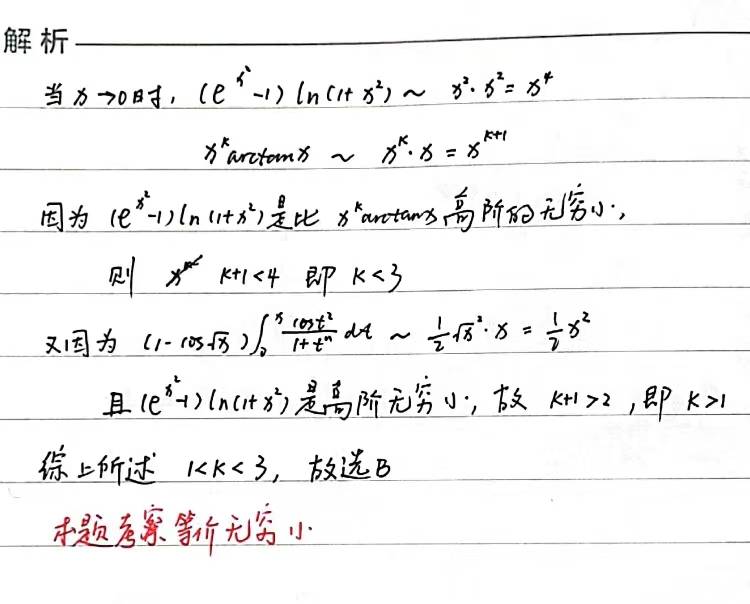 解析
当 x→0时, (e^{x²}-1) ln(1+x²) ~ x²·x² = x⁴
x^k arctanx ~ x^k·x = x^{k+1}
因为 (e^{x²}-1) ln(1+x²) 是比 x^k arctanx 高阶的无穷小,
则 k+1<4 即 k<3
又因为 (1-cos√x) ∫₀^x \frac{cost²}{1+t^n} dt ~ \frac{1}{2}√x²·x = \frac{1}{2}x²
且 (e^{x²}-1) ln(1+x²) 是高阶无穷小, 故 k+1>2, 即 k>1
综上所述 1<k<3, 故选B
本题考察等价无穷小